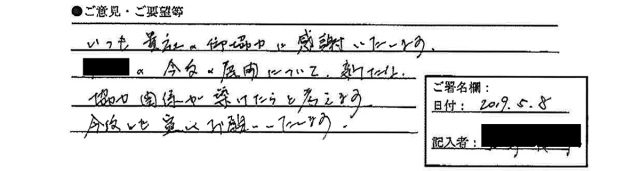 ●ご意見・ご要望等
いつも貴社の御協力に感謝いたします。
の今後の展開について、新たな
協力関係が築けたらと考えます。
今後とも宜しくお願いいたします。
ご署名欄:
日付: 2019.5.8
記入者: